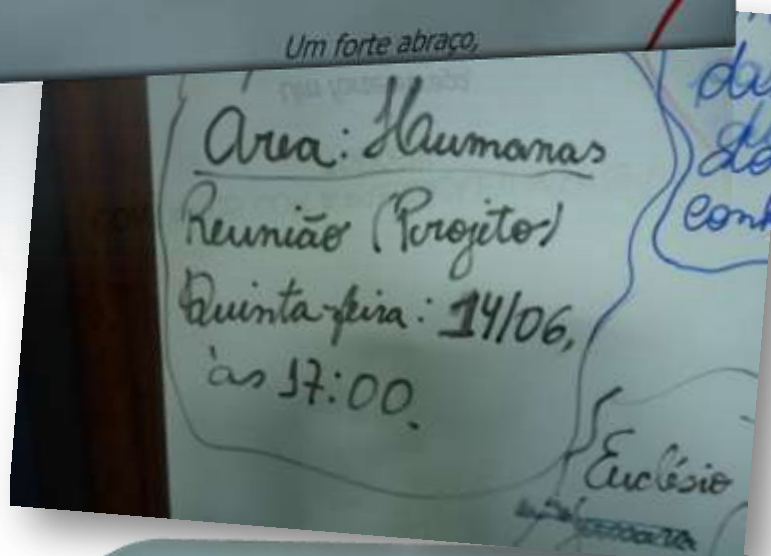 Um forte abraço,
Area: Haumanas
Reunião (Projeto)
Quinta-feira: 14/06,
às 17:00.
Euclésio